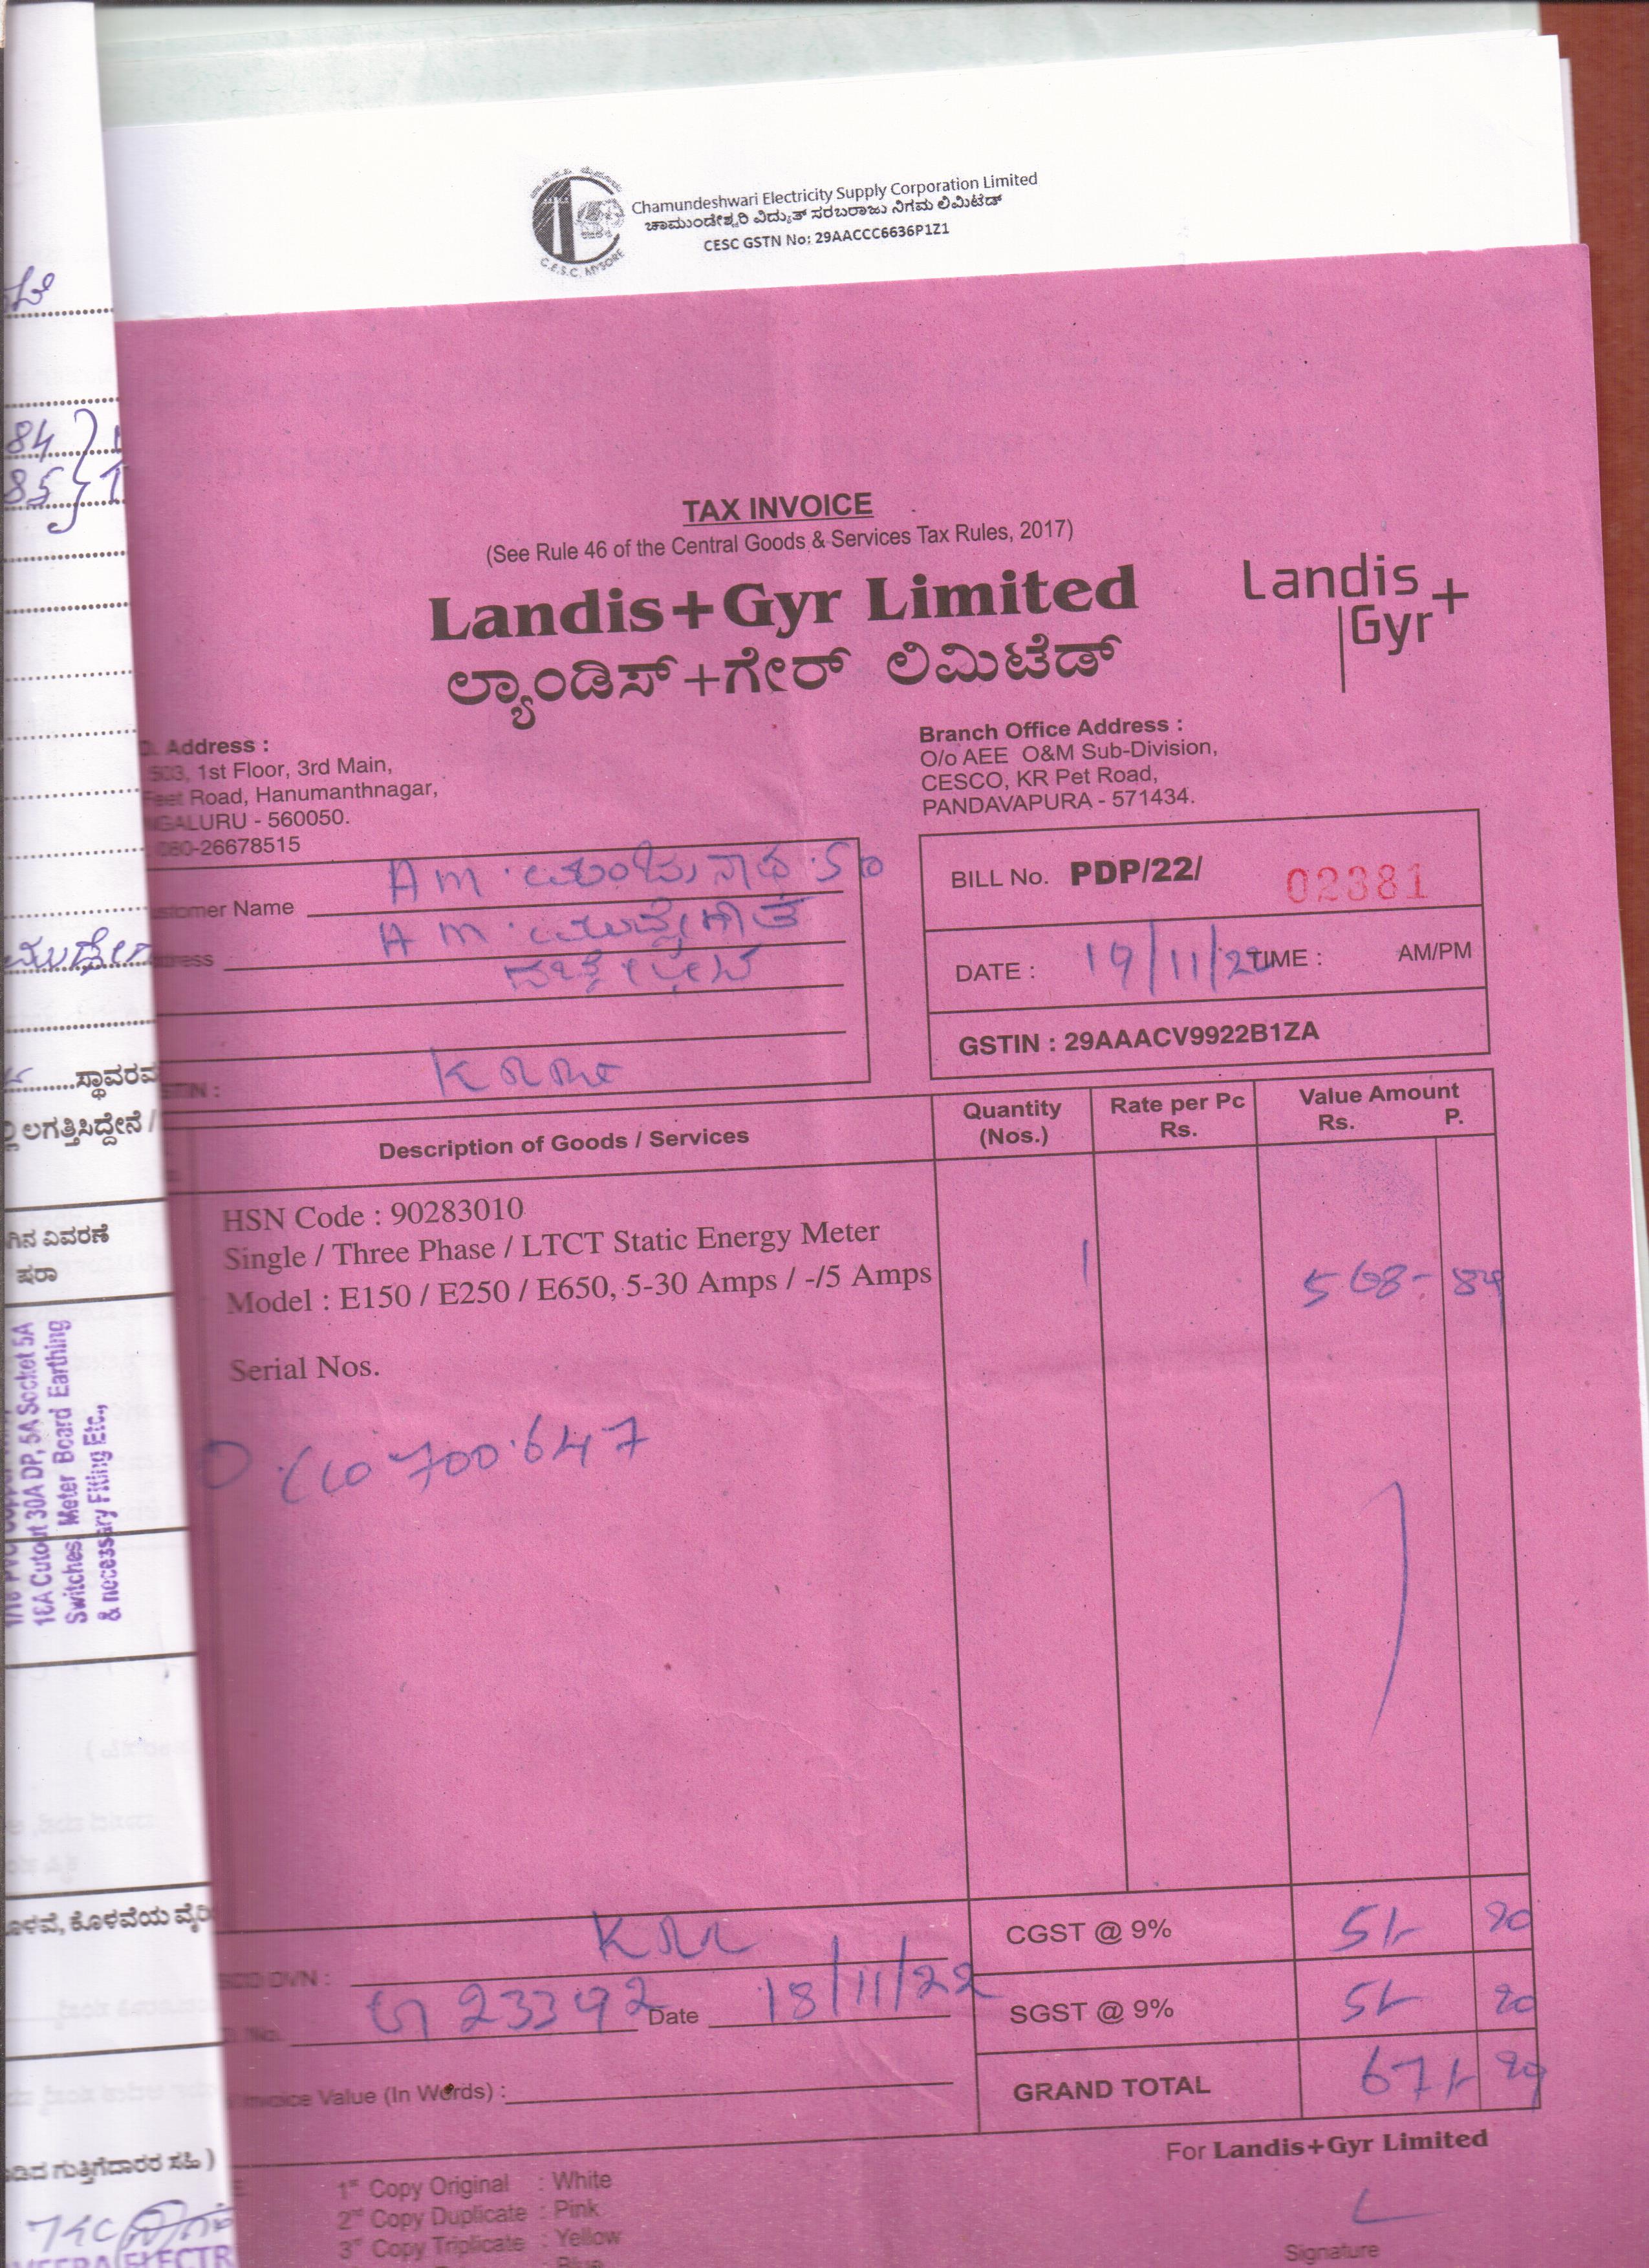 Chamundeshwari Electricity Supply Corporation Limited
ಚಾಮುಂಡೇಶ್ವರಿ ವಿದ್ಯುತ್ ಸರಬರಾಜು ನಿಗಮ ಲಿಮಿಟೆಡ್
CESC GSTN No: 29AACCC6636P1Z1
C.E.S.C. MYSORE
84
85
TAX INVOICE
(See Rule 46 of the Central Goods & Services Tax Rules, 2017)
Landis+Gyr Limited
ಲ್ಯಾಂಡಿಸ್+ಗೇರ್ ಲಿಮಿಟೆಡ್
Landis+
Gyr
Address :
503, 1st Floor, 3rd Main,
Feet Road, Hanumanthnagar,
GALURU - 560050.
080-26678515
Branch Office Address :
O/o AEE O&M Sub-Division,
CESCO, KR Pet Road,
PANDAVAPURA - 571434.
stomer Name A m. ಮಂಜುನಾಥ S/o
dress A m.
BILL No. PDP/22/ 02381
DATE : 19/11/22 TIME : AM/PM
GSTIN : 29AAACV9922B1ZA
STIN :
Description of Goods / Services
Quantity (Nos.)
Rate per Pc Rs.
Value Amount Rs. P.
HSN Code : 90283010
Single / Three Phase / LTCT Static Energy Meter
Model : E150 / E250 / E650, 5-30 Amps / -/5 Amps
1 568- 89
Serial Nos.
700.647
ಸ್ಥಾವರವ
ಲಗತ್ತಿಸಿದ್ದೇನೆ /
ಗಿನ ವಿವರಣೆ
ಷರಾ
16A Cutout 30A DP, 5A Socket 5A
Switches, Meter Board Earthing
& necessary Fiting Etc.,
ೊಳವೆ, ಕೊಳವೆಯ ವೈರಿ
CGST @ 9% 51- 20
DVN :
G 23392 Date 18/11/22
SGST @ 9% 51- 20
Invoice Value (In Words) :
GRAND TOTAL 671- 29
For Landis+Gyr Limited
ಡಿದ ಗುತ್ತಿಗೆದಾರರ ಸಹಿ )
1st Copy Original : White
2nd Copy Duplicate : Pink
3rd Copy Triplicate : Yellow
Blue
Signature
VEERA ELECTR